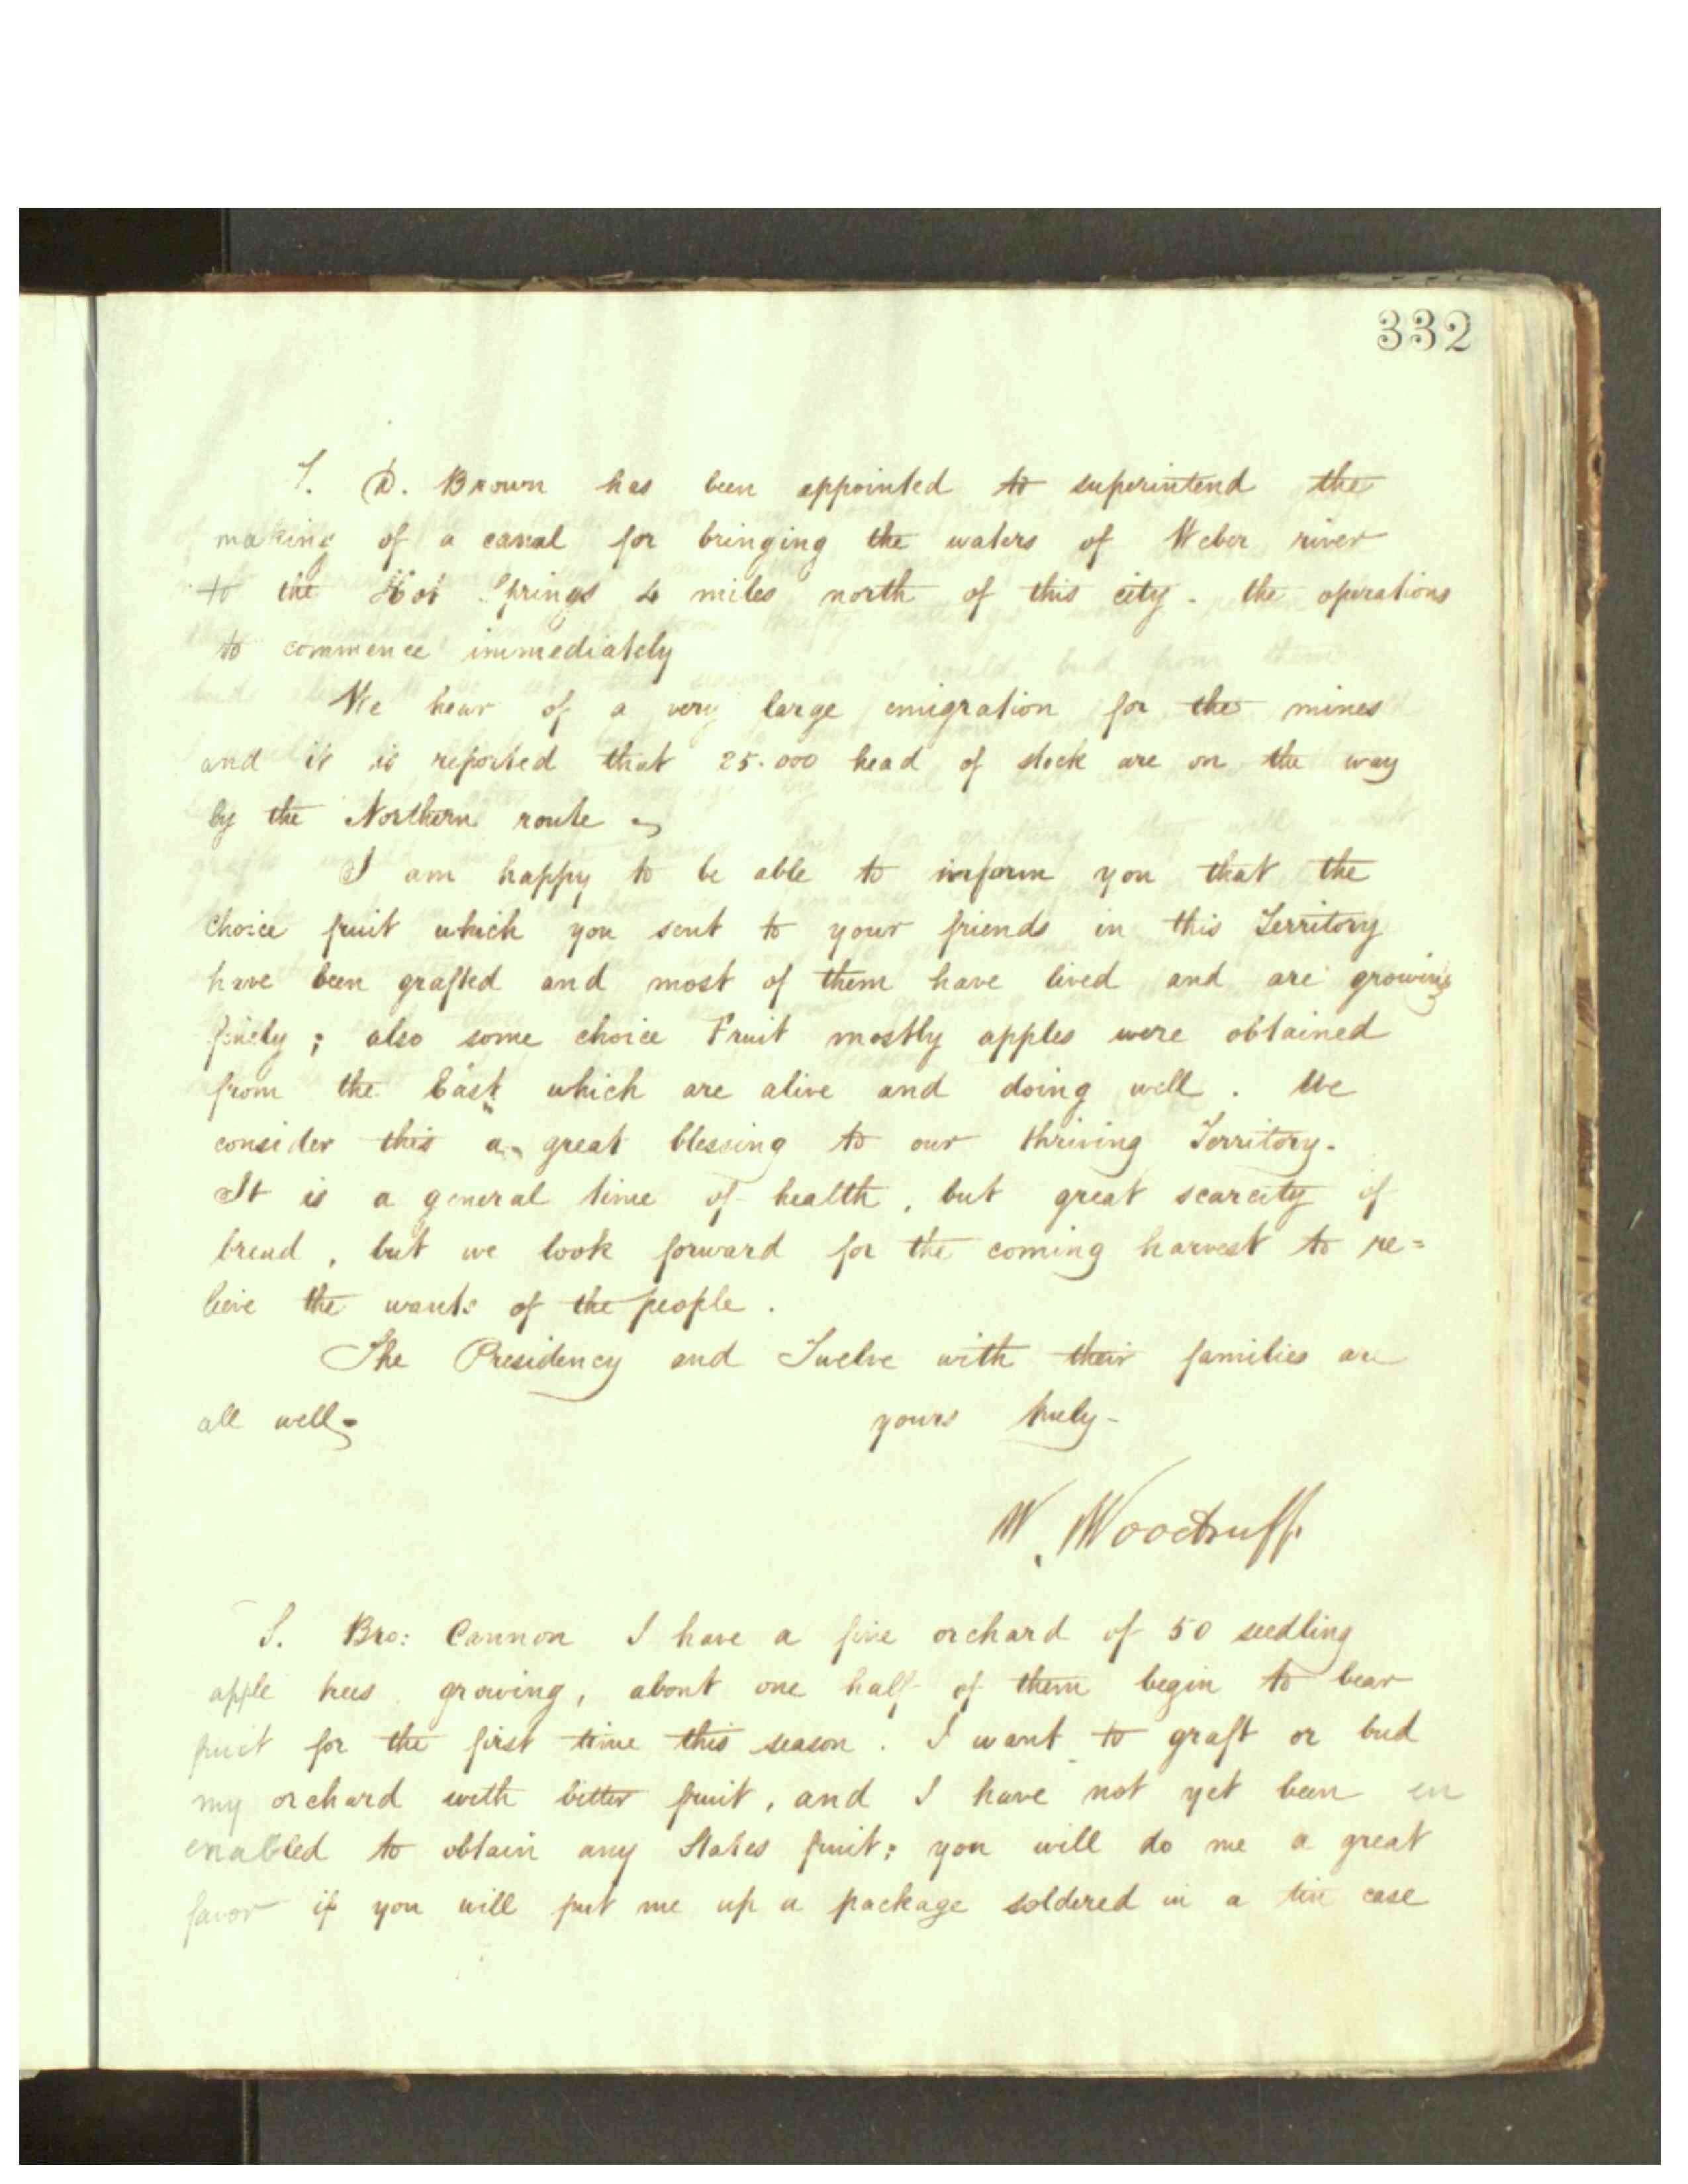 332
T. D. Brown has been appointed to superintend the
making of a canal for bringing the waters of Weber river
to the Hot Springs 4 miles north of this city - the operations
to commence immediately
We hear of a very large emigration for the mines
and it is reported that 25.000 head of stock are on the way
by the Northern route -
I am happy to be able to inform you that the
choice fruit which you sent to your friends in this Territory
have been grafted and most of them have lived and are growing
finely ; also some choice Fruit mostly apples were obtained
from the East which are alive and doing well . We
consider this a great blessing to our thriving Territory.
It is a general time of health , but great scarcity of
bread , but we look forward for the coming harvest to re=
lieve the wants of the people .
The Presidency and Twelve with their families are
all well - yours truly -
W. Woodruff
S. Bro: Cannon I have a fine orchard of 50 seedling
apple trees growing, about one half of them begin to bear
fruit for the first time this season . I want to graft or bud
my orchard with better fruit , and I have not yet been en
enabled to obtain any States fruit ; you will do me a great
favor if you will put me up a package soldered in a tin case